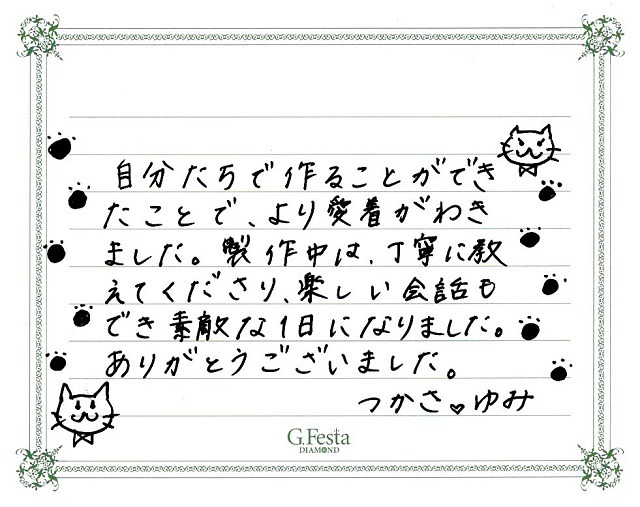 自分たちで作ることができ
たことで、より愛着がわき
ました。製作中は、丁寧に教
えてくださり、楽しい会話も
でき素敵な1日になりました。
ありがとうございました。
つかさ♥ゆみ
G.Festa
DIAMOND